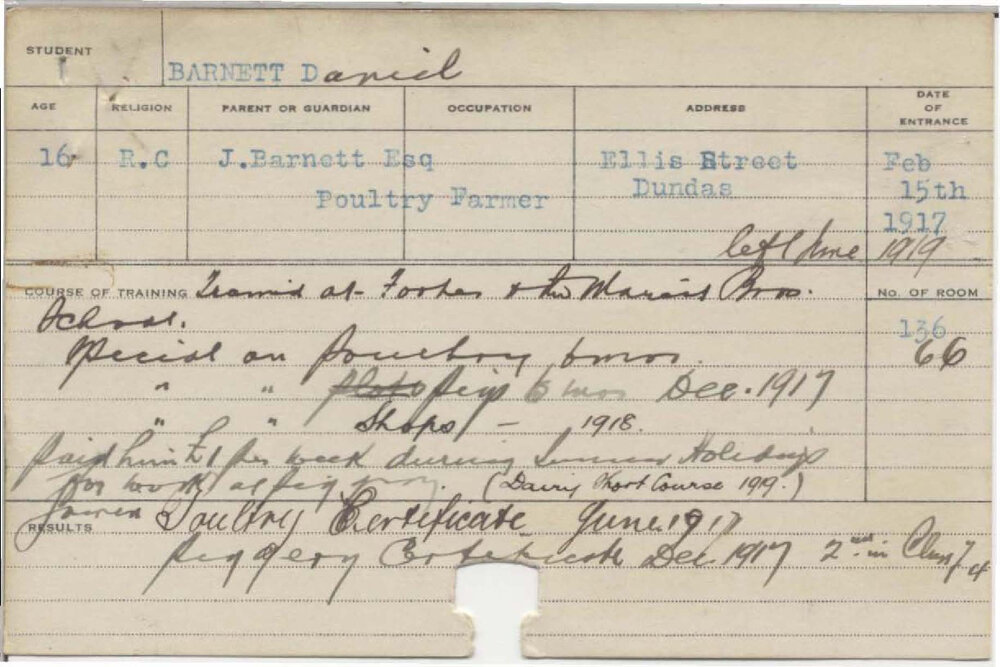 STUDENT
BARNETT Daniel
AGE RELIGION PARENT OR GUARDIAN OCCUPATION ADDRESS DATE OF ENTRANCE
16 R.C J.Barnett Esq Ellis Street Feb
Poultry Farmer Dundas 15th
1917
left June 1919
COURSE OF TRAINING Trained at Forbes & the Marist Bros. No. OF ROOM
School. 136
Special on poultry 6 mos. 66
" " pigs 6 mos Dec. 1917
" " Shops - 1918.
paid him £1 per week during Summer Holidays
for work at piggery. (Dairy Short Course 1919.)
RESULTS Poultry Certificate June 1917
Piggery Certificate Dec. 1917 2nd in Class